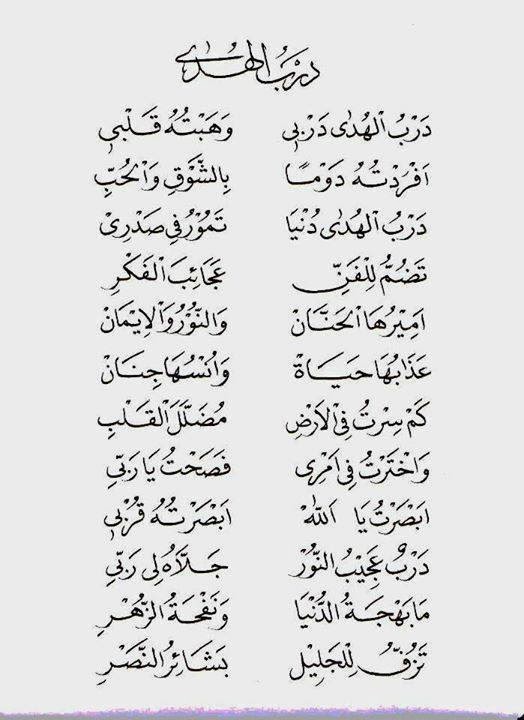 دَرْبُ الْهُدٰى
دَرْبُ الْهُدٰى دَرْبِي وَهَبْتُهُ قَلْبِي
اَفْرَدْتُهُ دَوْمًا بِالشَّوْقِ وَالْحُبِّ
دَرْبُ الْهُدٰى دُنْيَا تَمُوْرُ فِي صَدْرِيْ
تَضُمُّ لِلْفَنِّ عَجَائِبَ الْفَكْرِ
اَمِيْرُهَا الْحَنَّانْ وَالنُّوْرُ وَالْاِيْمَانْ
عَذَابُهَا حَيَاةْ وَاُنْسُهَا جِنَانْ
كَمْ سِرْتُ فِى الْاَرْضِ مُضَلَّلَ الْقَلْبِ
وَاخْتَرْتُ فِى اَمْرِى فَصَحْتُ يَا رَبِّي
اَبْصَرْتُ يَا اَللهْ اَبْصَرْتُهُ قُرْبِي
دَرْبٌ عَجِيْبُ النُّوْرْ جَلَّاهُ لِى رَبِّي
مَا بَهْجَةُ الدُّنْيَا وَنَفْحَةُ الزَّهْرِ
تَزُفُّ لِلْجَلِيْل بَشَائِرُ النَّصْرِ